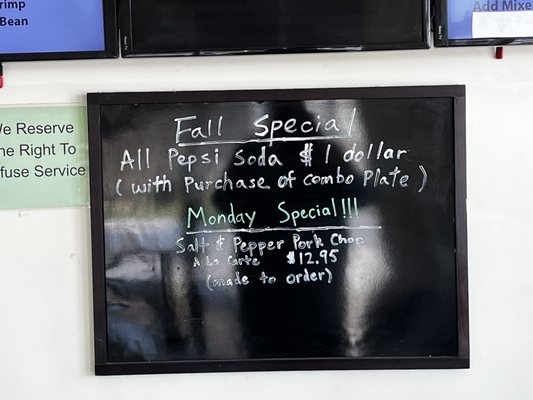 Bean
Add Mixe
We Reserve
The Right To
fuse Service
Fall Special
All Pepsi Soda $ 1 dollar
( with Purchase of Combo Plate )
Monday Special!!!
Salt & Pepper Pork Chop
A La Carte $12.95
(made to order)